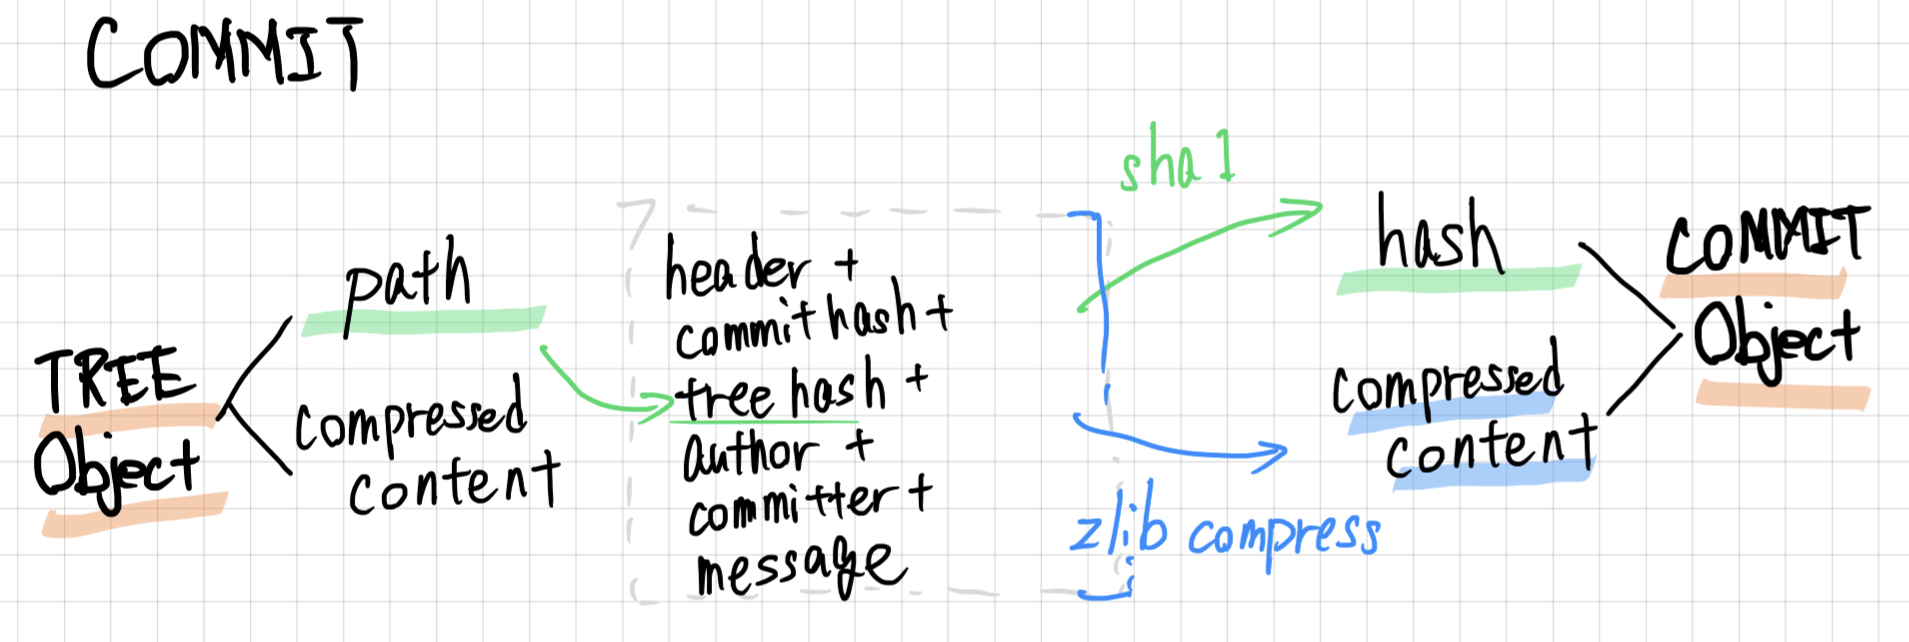 COMMIT
TREE
Object
path
compressed
content
header +
commit hash +
tree hash +
author +
committer +
message
sha1
zlib compress
hash
compressed
content
COMMIT
Object